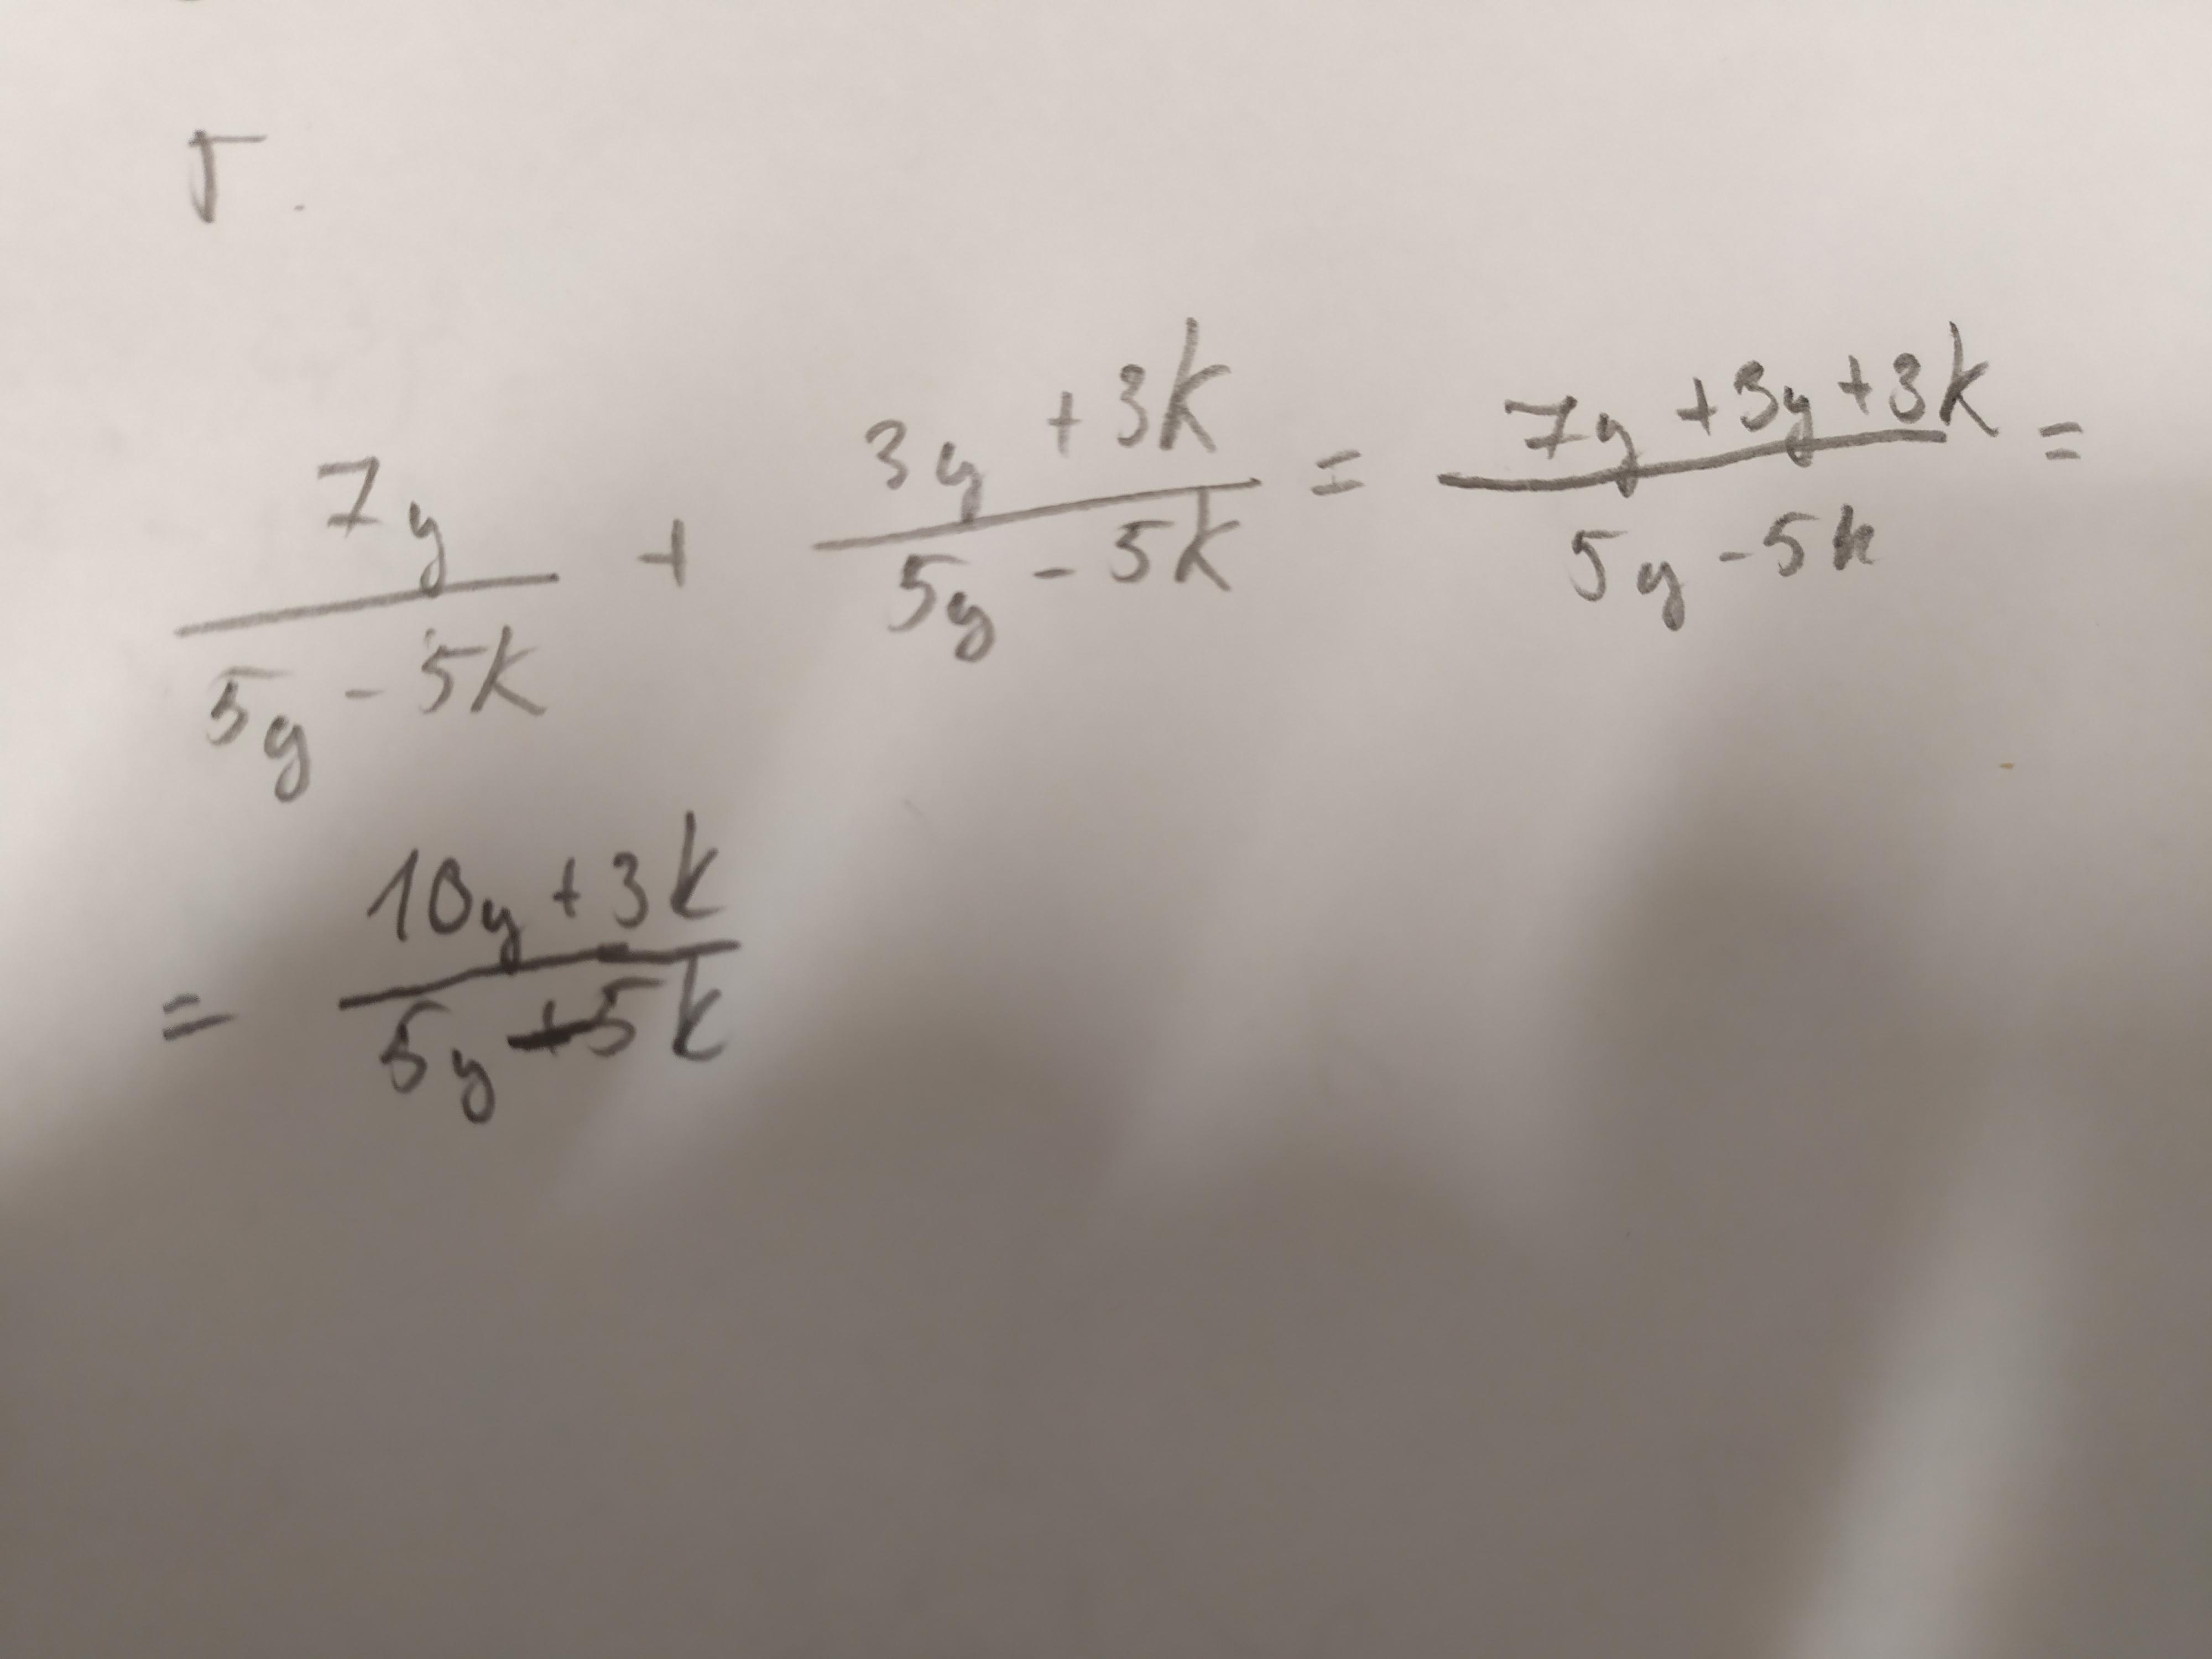 Г.
7y/(5y - 5k) + (3y + 3k)/(5y - 5k) = (7y + 3y + 3k)/(5y - 5k) =
= (10y + 3k)/(5y - 5k)